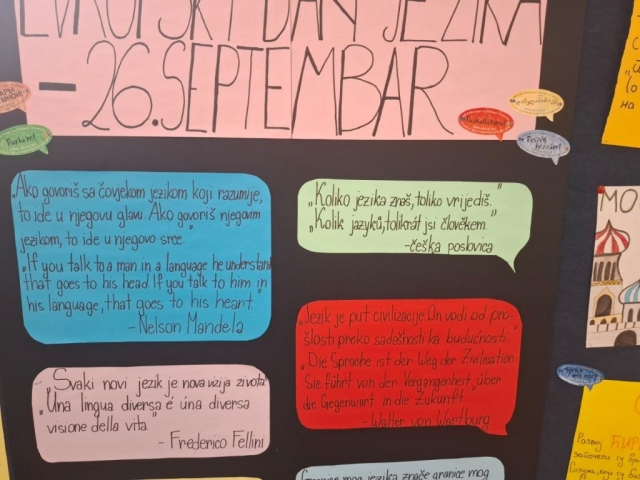 EVROPSKI DAN JEZIKA
- 26. SEPTEMBAR
Parlate!
„Ako govoriš sa čovjekom jezikom koji razumije,
to ide u njegovu glavu. Ako govoriš njegovim
jezikom, to ide u njegovo srce."
„If you talk to a man in a language he understand
that goes to his head. If you talk to him in
his language, that goes to his heart."
- Nelson Mandela
„Koliko jezika znaš, toliko vrijediš."
„Kolik jazyků, tolikrát jsi člověkem."
- češka poslovica
„Jezik je put civilizacije. On vodi od pro-
šlosti preko sadašnosti ka budućnosti."
„Die Sprache ist der Weg der Zivilisation
Sie führt von der Vergangenheit über
die Gegenwart in die Zukunft"
- Walter von Wartburg
„Svaki novi jezik je nova vizija života"
„Una lingua diversa é una diversa
visione della vita."
- Frederico Fellini
jezika znače granice mog
МО
на
Развој ЋИР